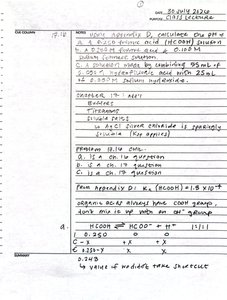 ①
DATE 30 July 2020
PURPOSE Class Lecture
CUE COLUMN
NOTES
17.14 Using Appendix D, calculate the pH of
a. a 0.250 formic acid (HCOOH) solution
b. a 0.250 M formic acid & 0.100 M
sodium formate solution
c. a solution made by combining 75 mL of
with 25 mL
of 0.250 M sodium hydroxide.
Chapter 17.1
Buffers
Titrations
Solubilities
↳ AgCl silver chloride is sparingly
soluble (Ksp applies)
Problem 17.14 cont.
a. is a ch. 16 question
b. is a ch. 17 question
c. is a ch. 17 question
From Appendix D: Ka (HCOOH) = 1.8 × 10⁻⁴
organic acids always have COOH group,
don't mix it up with an OH⁻ group
a. HCOOH ⇌ HCOO⁻ + H⁺
I 0.250 0 0
C -x +x +x
E 0.250-x x x
SUMMARY
0.243
↳ value of
take shortcut